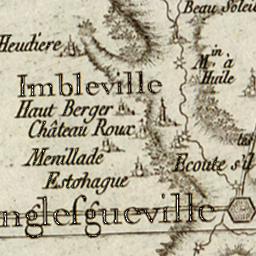 Beau Soleil
Heudiere
M.in à
Huile
Imbleville
Haut Berger
Château Roux
Menillade
Ecoute s'il
Estohague
nglesqueville